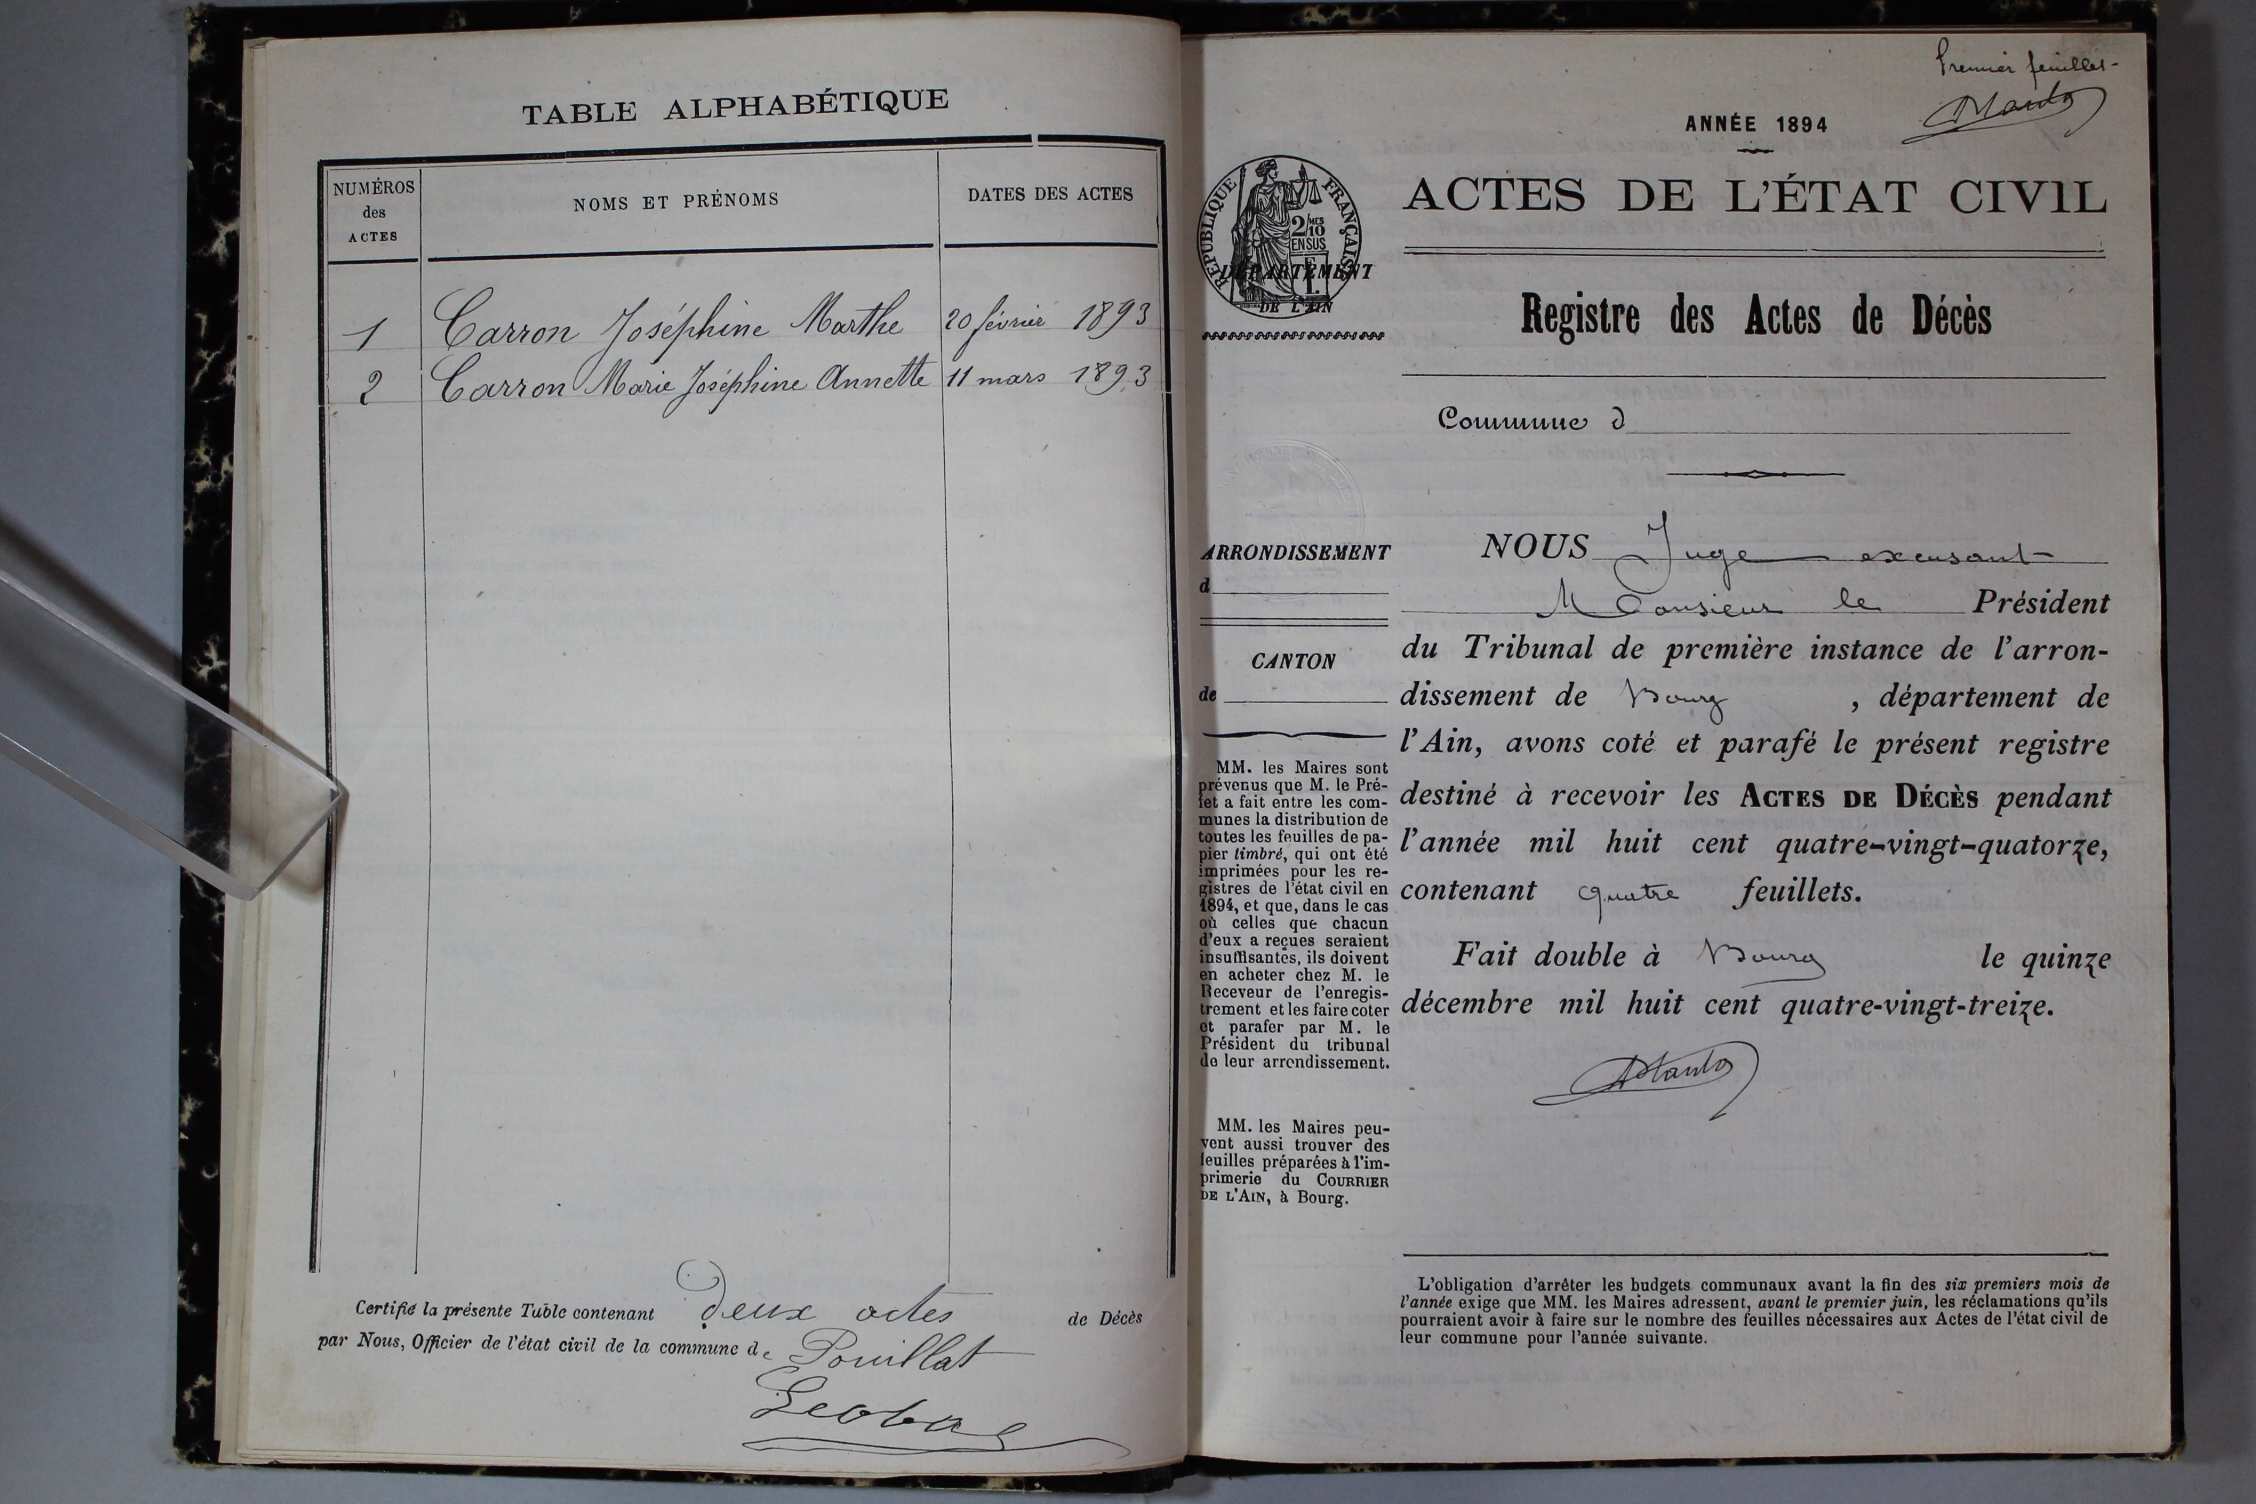 TABLE ALPHABÉTIQUE
NUMÉROS
des
ACTES
NOMS ET PRÉNOMS
DATES DES ACTES
1 Carron Joséphine Marthe 20 février 1893
2 Carron Marie Joséphine Annette 11 mars 1893
Certifié la présente Table contenant deux actes de Décès
par Nous, Officier de l'état civil de la commune de Pouillat
Premier feuillet
ANNÉE 1894
RÉPUBLIQUE FRANÇAISE
2/10
MES
EN SUS
DÉPARTEMENT
DE L'AIN
ACTES DE L'ÉTAT CIVIL
Registre des Actes de Décès
Commune d
ARRONDISSEMENT
d
CANTON
de
MM. les Maires sont
prévenus que M. le Pré-
fet a fait entre les com-
munes la distribution de
toutes les feuilles de pa-
pier timbré, qui ont été
imprimées pour les re-
gistres de l'état civil en
1894, et que, dans le cas
où celles que chacun
d'eux a reçues seraient
insuffisantes, ils doivent
en acheter chez M. le
Receveur de l'enregis-
trement et les faire coter
et parafer par M. le
Président du tribunal
de leur arrondissement.
MM. les Maires peu-
vent aussi trouver des
feuilles préparées à l'im-
primerie du COURRIER
DE L'AIN, à Bourg.
NOUS Juge excusant
Monsieur le Président
du Tribunal de première instance de l'arron-
dissement de Bourg, département de
l'Ain, avons coté et parafé le présent registre
destiné à recevoir les ACTES DE DÉCÈS pendant
l'année mil huit cent quatre-vingt-quatorze,
contenant quatre feuillets.
Fait double à Bourg le quinze
décembre mil huit cent quatre-vingt-treize.
L'obligation d'arrêter les budgets communaux avant la fin des six premiers mois de
l'année exige que MM. les Maires adressent, avant le premier juin, les réclamations qu'ils
pourraient avoir à faire sur le nombre des feuilles nécessaires aux Actes de l'état civil de
leur commune pour l'année suivante.